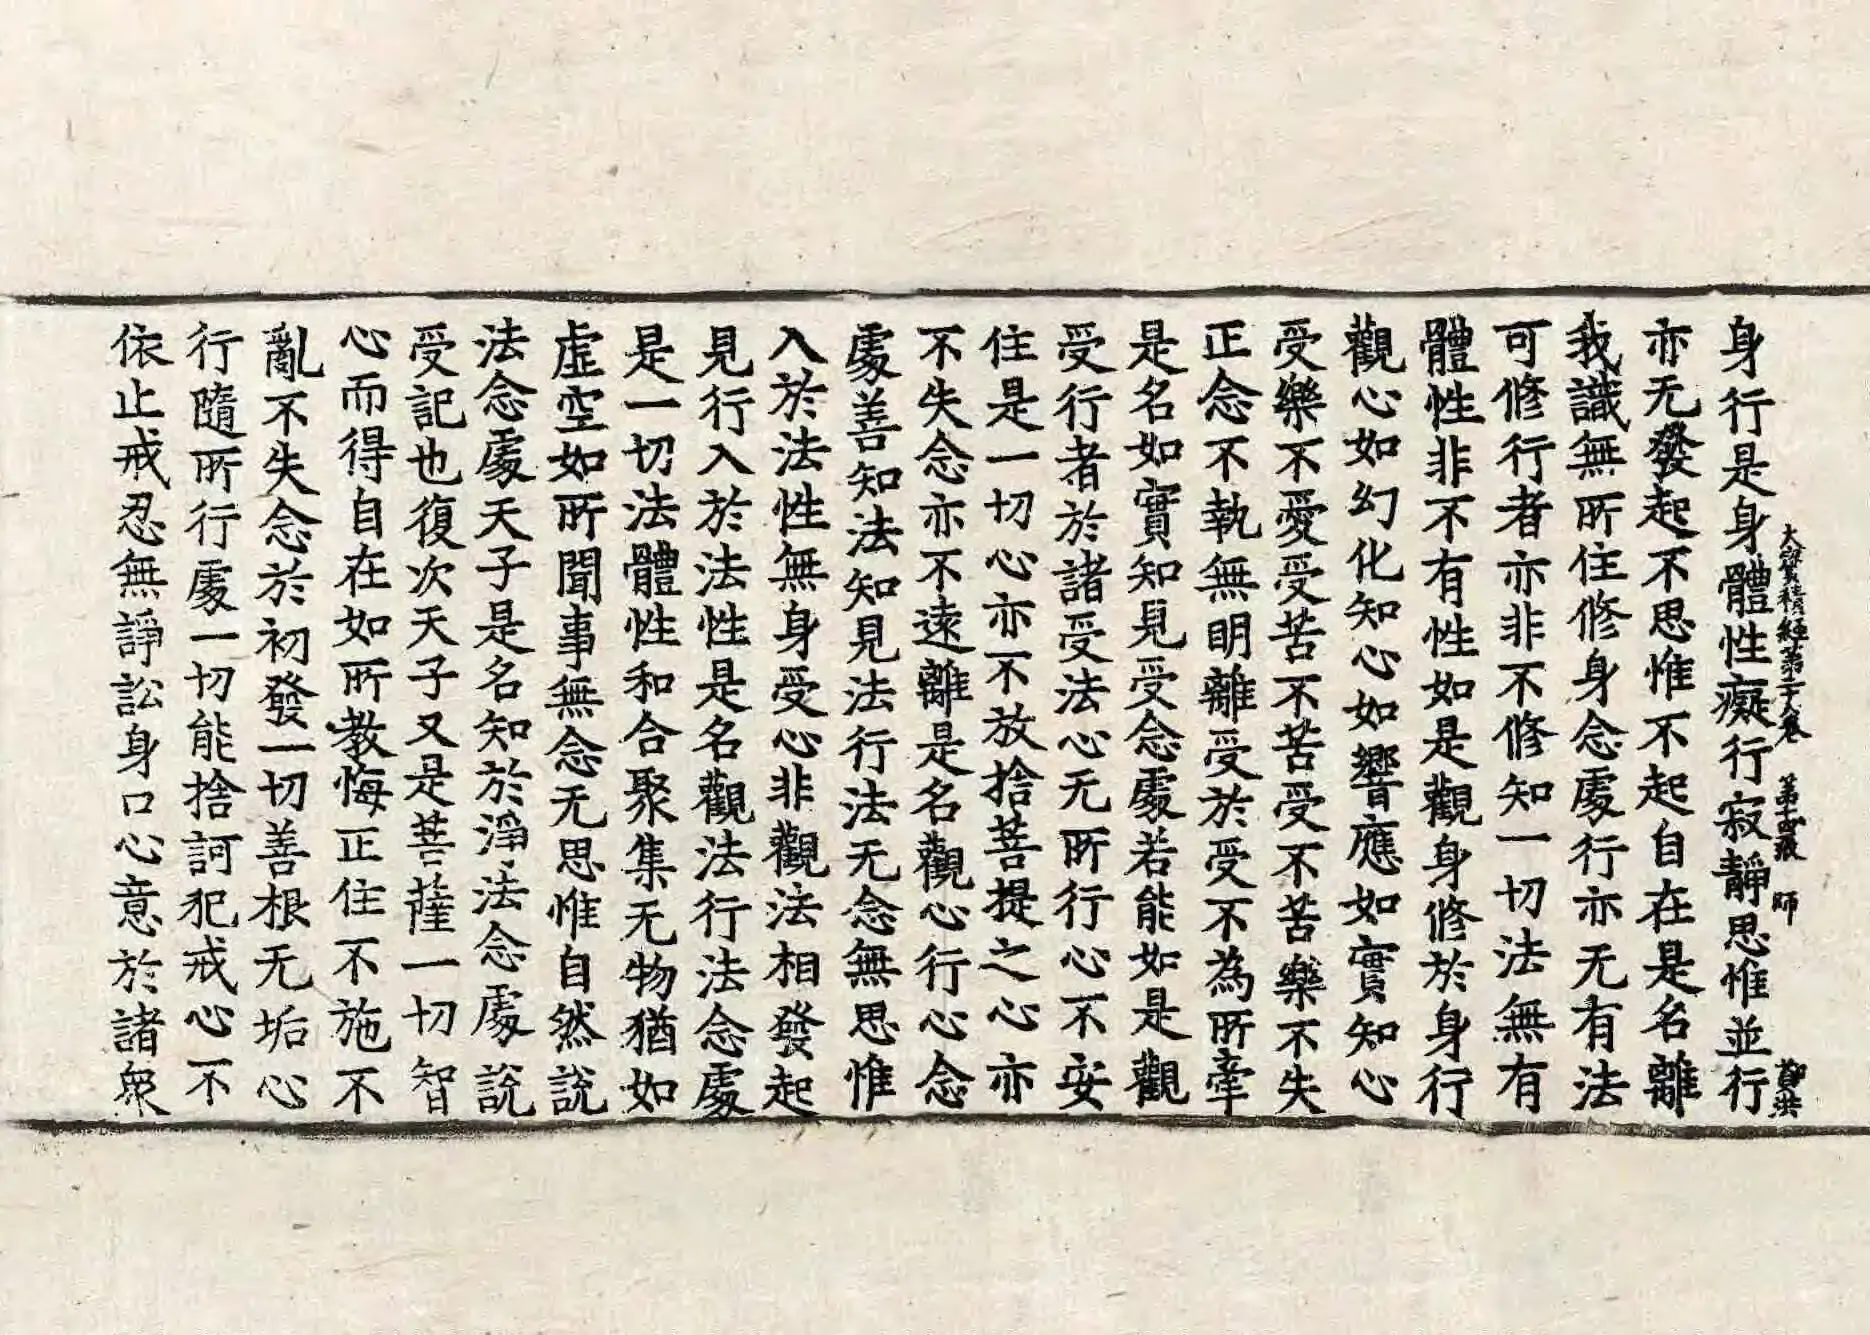 身行是身體性癡行寂靜思惟並行
亦无發起不思惟不起自在是名離
我識無所住修身念處行亦无有法
可修行者亦非不修知一切法無有
體性非不有性如是觀身修於身行
觀心如幻化知心如響應如實知心
受樂不愛受苦不苦受不苦樂不失
正念不執無明離受於受不為所牽
是名如實知見受念處若能如是觀
受行者於諸受法心无所行心不安
住是一切心亦不放捨菩提之心亦
不失念亦不遠離是名觀心行心念
處善知法知見法行法无念無思惟
入於法性無身受心非觀法相發起
見行入於法性是名觀法行法念處
是一切法體性和合聚集无物猶如
虛空如所聞事無念无思惟自然說
法念處天子是名知於淨法念處說
受記也復次天子又是菩薩一切智
心而得自在如所教悔正住不施不
亂不失念於初發一切善根无垢心
行隨所行處一切能捨訶犯戒心不
依止戒忍無諍訟身口心意於諸衆
大寶積經第二十八卷 第十四張 師